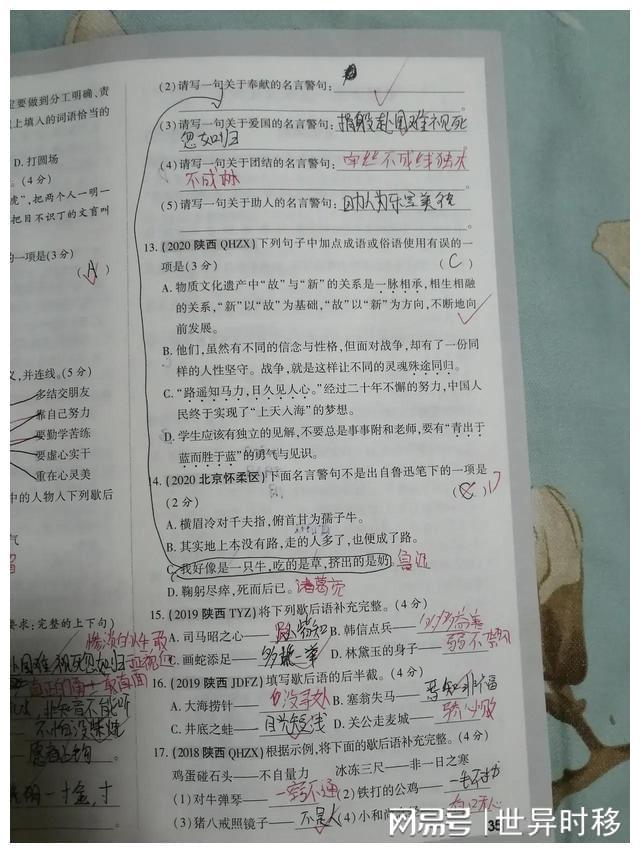 定要做到分工明确、责
上填入的词语恰当的
D. 打圆场
(4分)
虎”,把两个人一明一
把目不识丁的文盲叫
的一项是(3分)
(A)
义,并连线。(5分)
多结交朋友
靠自己努力
要勤学苦练
要虚心实干
重在心灵美
中的人物入下列歇后
气
要求;完整的上下句)
(2)请写一句关于奉献的名言警句:
(3)请写一句关于爱国的名言警句:捐躯赴国难视死
忽如归
(4)请写一句关于团结的名言警句:单丝不成线独木
不成林
(5)请写一句关于助人的名言警句:助人为乐是美德
13.(2020 陕西 QHZX)下列句子中加点成语或俗语使用有误的一
项是(3分) (C)
A. 物质文化遗产中“故”与“新”的关系是一脉相承,相生相融
的关系,“新”以“故”为基础,“故”以“新”为方向,不断地向
前发展。
B. 他们,虽然有不同的信念与性格,但面对战争,却有了一份同
样的人性坚守。战争,就是这样让不同的灵魂殊途同归。
C. “路遥知马力,日久见人心。”经过二十年不懈的努力,中国人
民终于实现了“上天入海”的梦想。
D. 学生应该有独立的见解,不要总是事事附和老师,要有“青出于
蓝而胜于蓝”的勇气与见识。
14.(2020 北京怀柔区)下面名言警句不是出自鲁迅笔下的一项是
(2分)
A. 横眉冷对千夫指,俯首甘为孺子牛。
B. 其实地上本没有路,走的人多了,也便成了路。
C. 我好像是一只牛,吃的是草,挤出的是奶 鲁迅
D. 鞠躬尽瘁,死而后已。诸葛亮
15.(2019 陕西 TYZ)将下列歇后语补充完整。(4分)
A. 司马昭之心—— B. 韩信点兵——多多益善
C. 画蛇添足——多此一举 D. 林黛玉的身子——弱不禁风
16.(2019 陕西 JDFZ)填写歇后语的后半截。(4分)
A. 大海捞针—— B. 塞翁失马——焉知非福
C. 井底之蛙——目光短浅 D. 关公走麦城——
17.(2018 陕西 QHZX)根据示例,将下面的歇后语补充完整。(4分)
鸡蛋碰石头——不自量力 冰冻三尺——非一日之寒
(1)对牛弹琴——一窍不通 (2)铁打的公鸡——一毛不拔
(3)猪八戒照镜子——不是人 (4)小和尚
35
网易号 | 世异时移